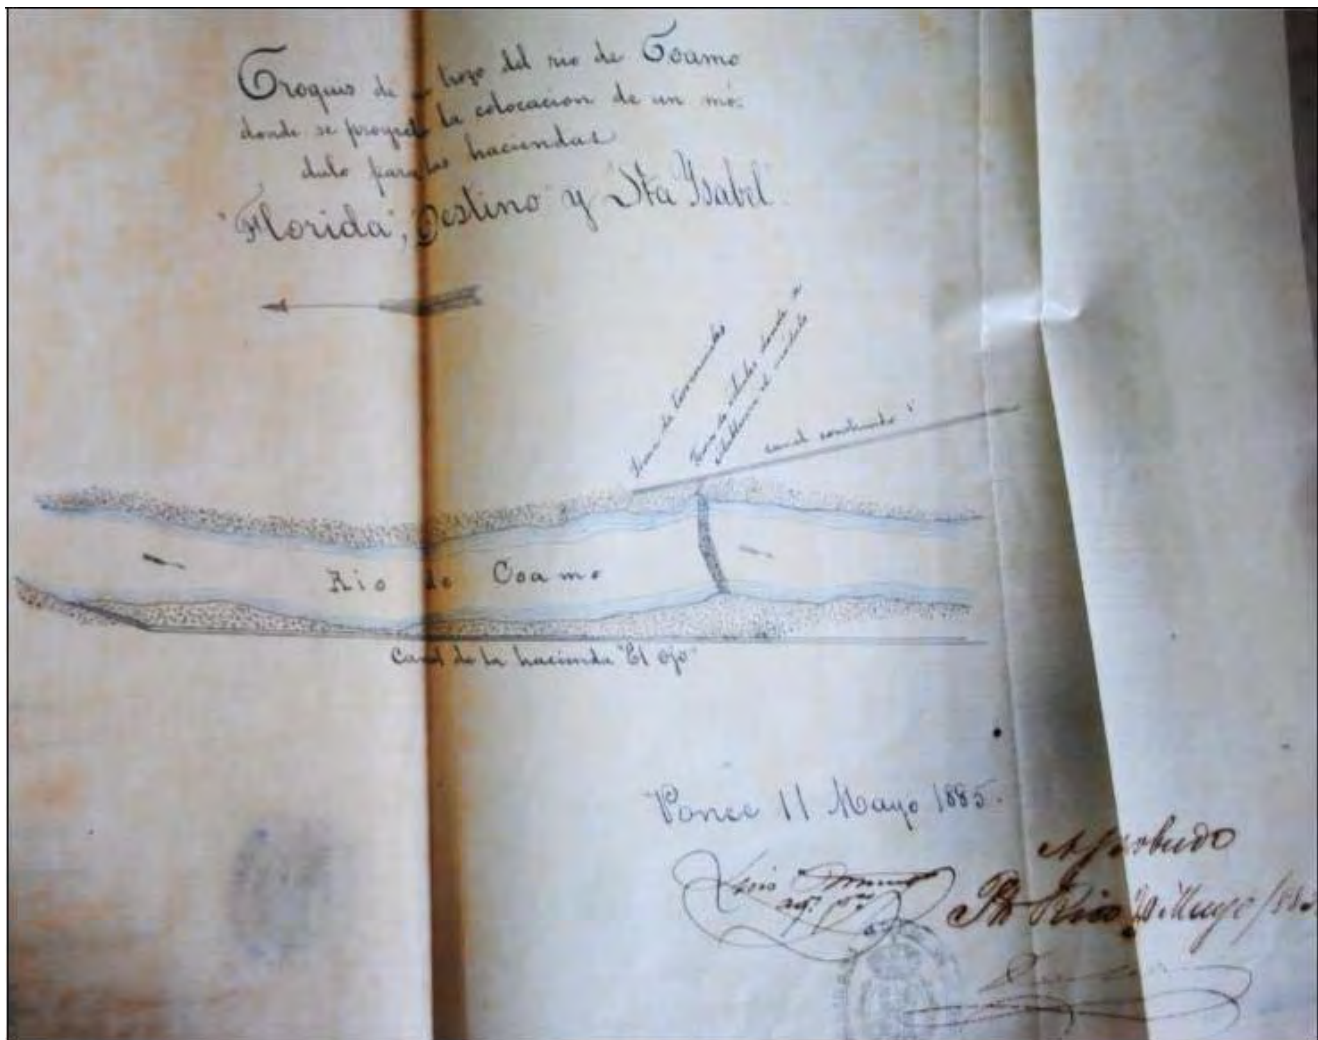 Croquis de un trozo del rio de Coamo
donde se proyecta la colocacion de un mó-
dulo para las haciendas
"Florida", Destino y Sta Ysabel
Toma de
Toma de donde se
establecerá el módulo
canal construido
Rio de Coamo
Canal de la hacienda "El Ojo"
Ponce 11 Mayo 1885.
Aprobado
Pto Rico Mayo